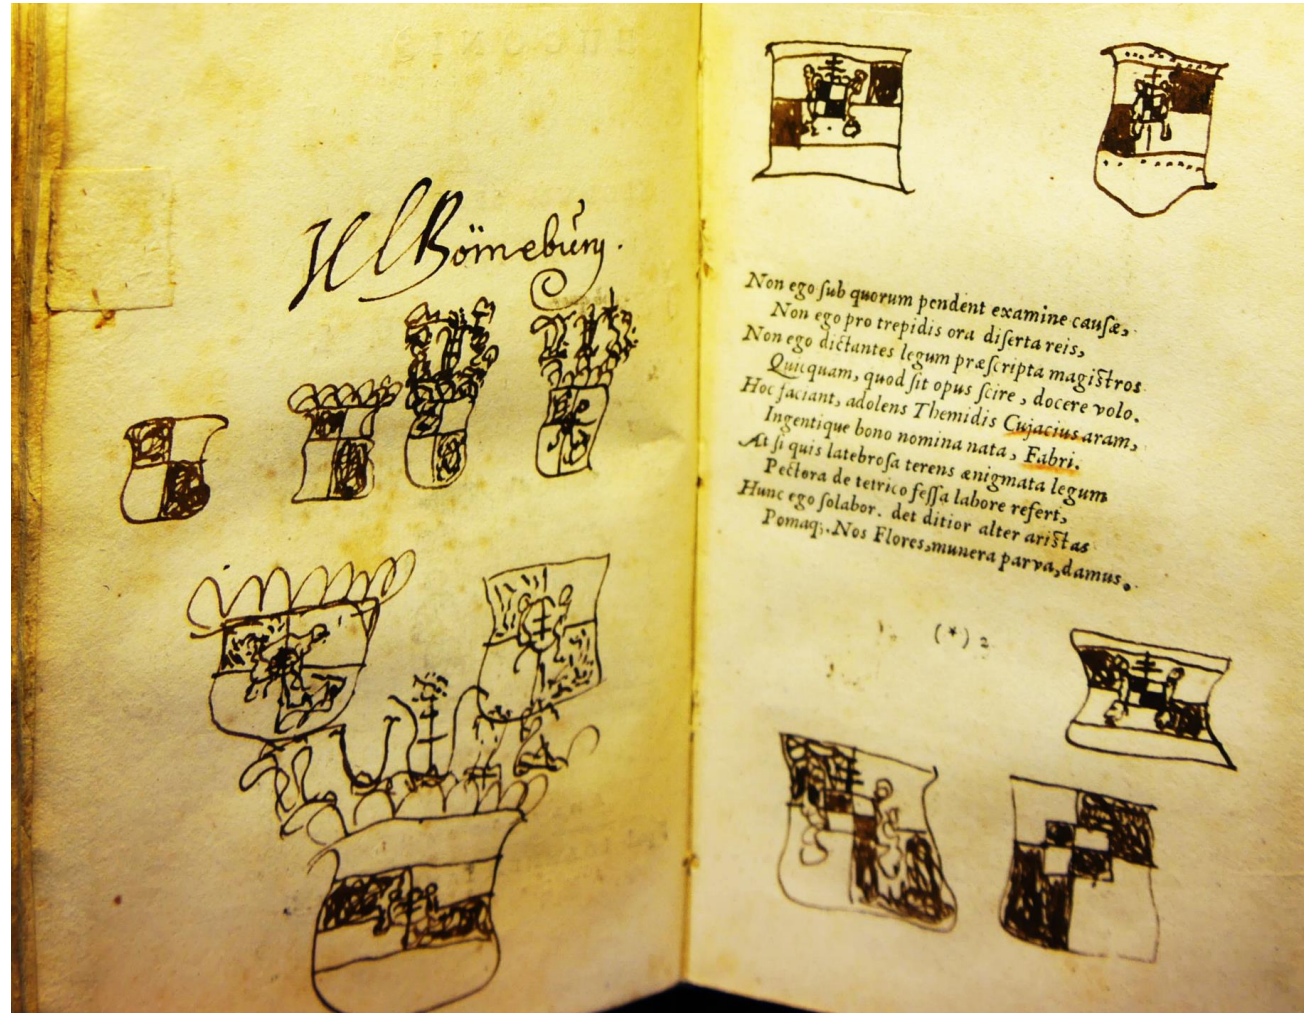 HL Böineburg.
Non ego ſub quorum pendent examine cauſæ,
Non ego pro trepidis ora diſerta reis,
Non ego dictantes legum præſcripta magistros
Quicquam, quod ſit opus ſcire, docere volo.
Hoc faciant, adolens Themidis Cujacius aram,
Ingentique bono nomina nata, Fabri.
At ſi quis latebroſa terens ænigmata legum
Pectora de tetrico feſſa labore refert,
Hunc ego ſolabor. det ditior alter aristas
Pomaq;. Nos Flores, munera parva, damus.
(*) 2